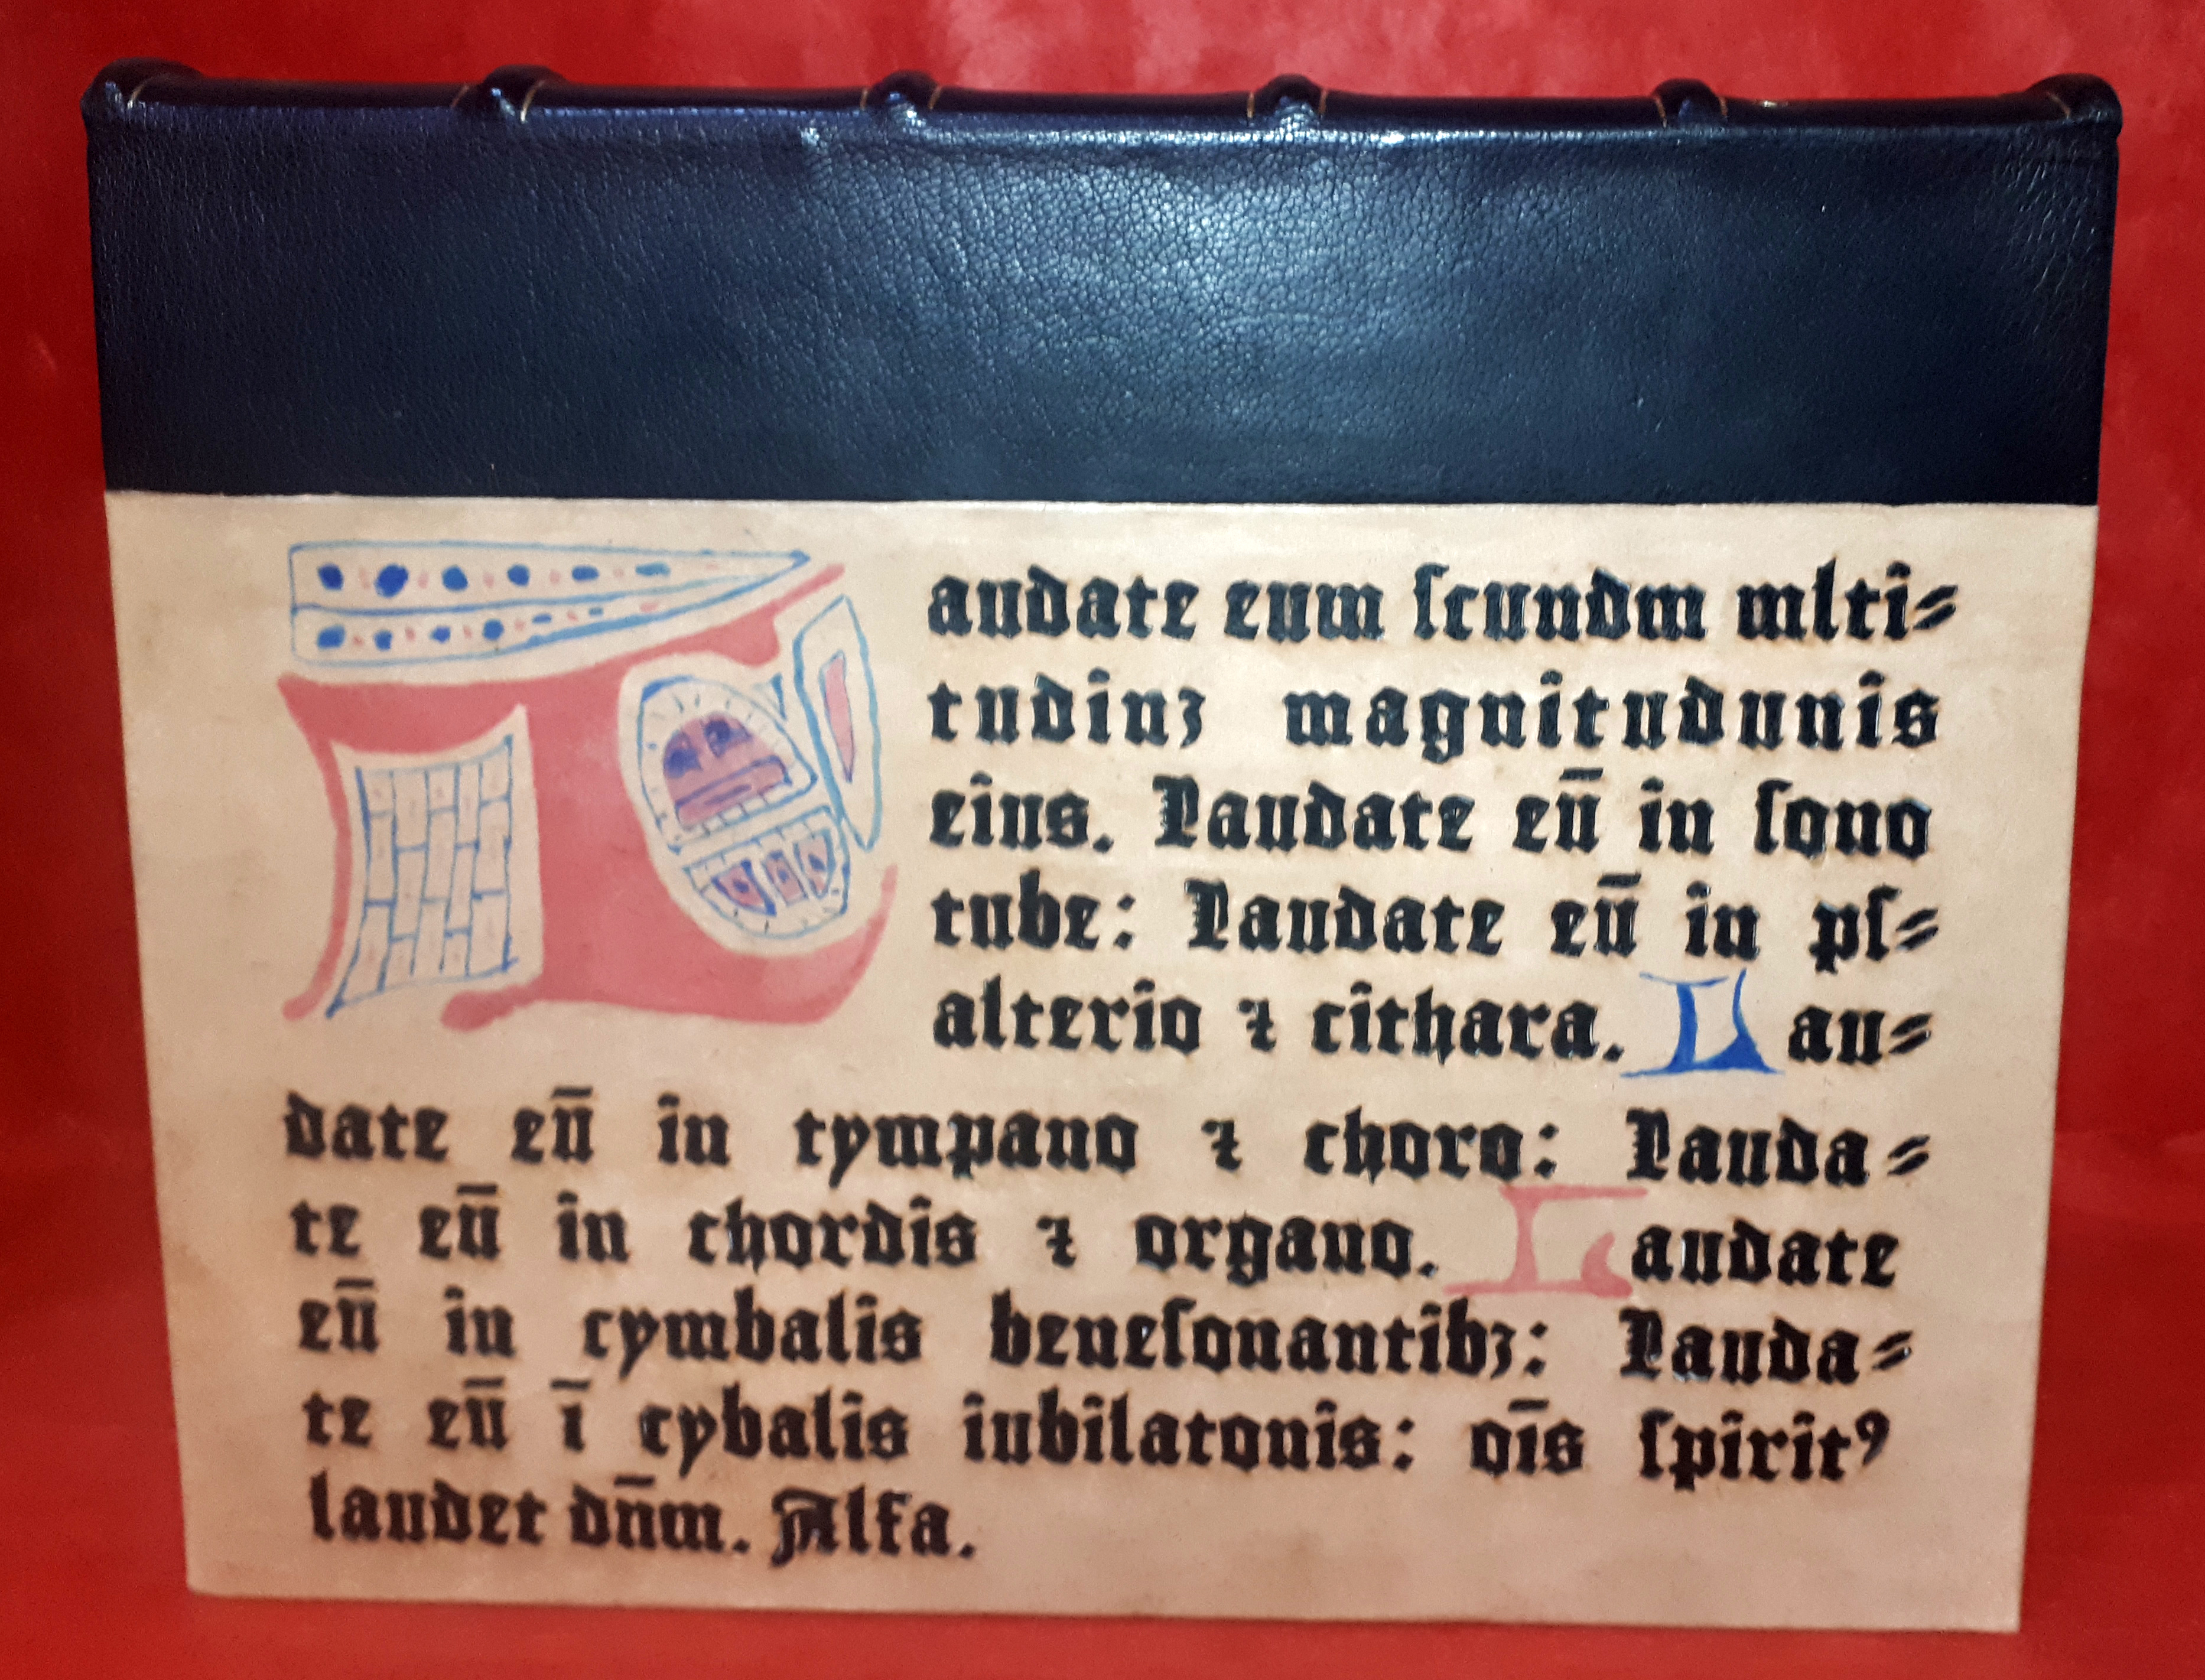 Laudate eum ſcundm mlti⸗
tudinꝫ magnitudunis
eius. Laudate eū in ſono
tube: Laudate eū in pſ⸗
alterio ⁊ cithara. Lau⸗
date eū in tympano ⁊ choro: Lauda⸗
te eū in chordis ⁊ organo. Laudate
eū in cymbalis beneſonantibꝫ: Lauda⸗
te eū ī cybalis iubilatonis: oīs ſpiritꝰ
laudet dn̄m. Alfa.